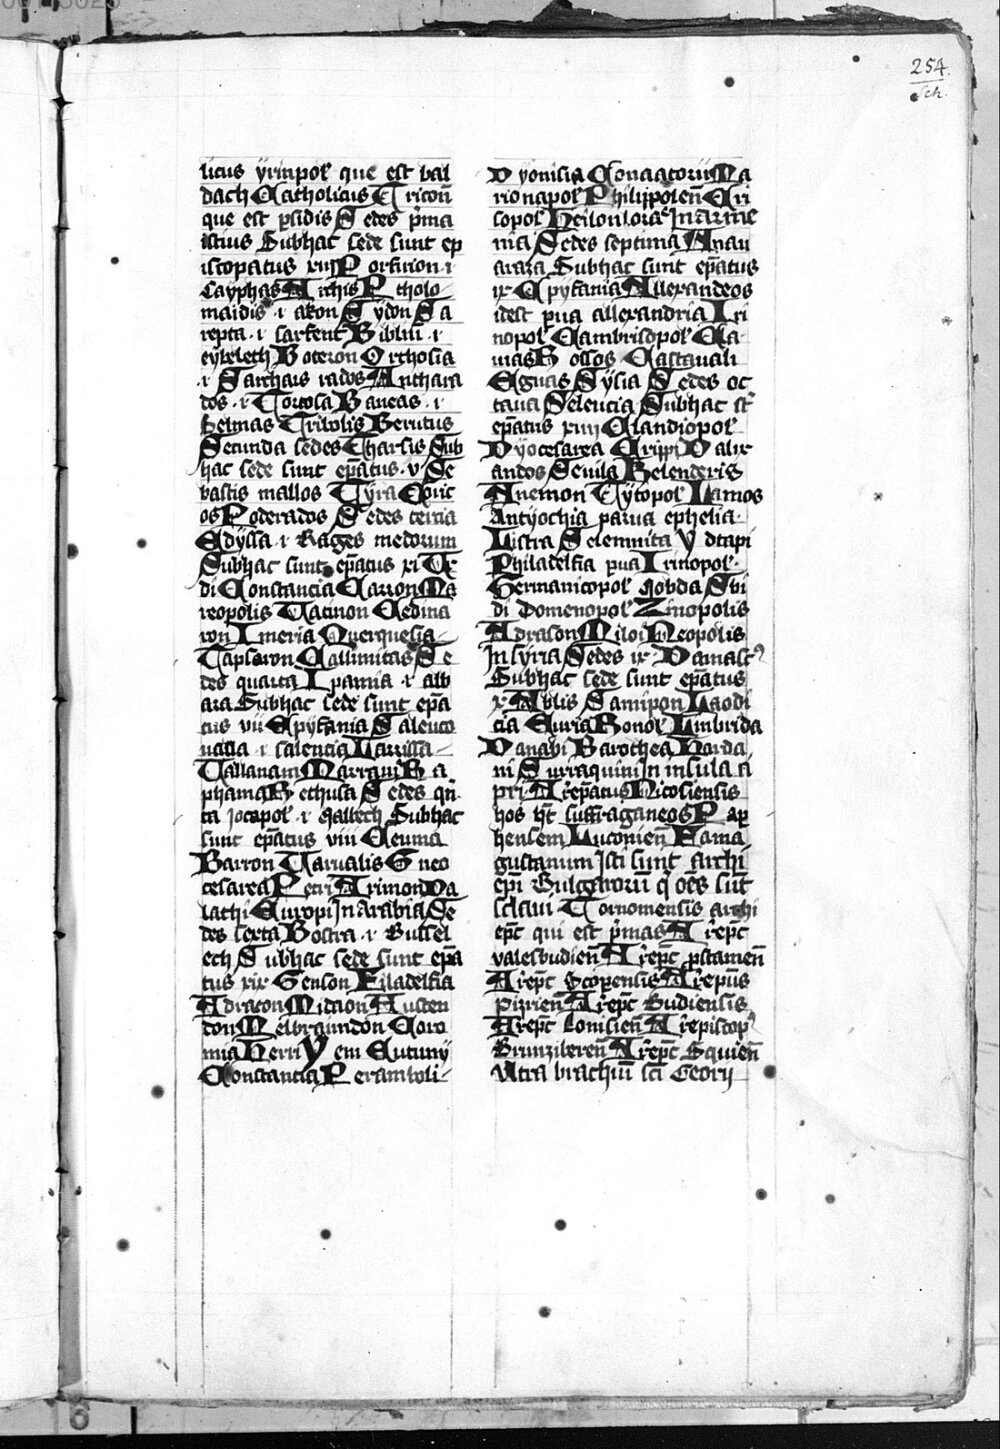 254
Sch.
licus yrinpol' que est bal
dach Catholicus Tricon̄
que est psidis Sedes pͥma
istius Subhac sede sunt ep
iscopatus xiij Porfirion ·i·
Cayphas Archis Ptholo
maidis ·i· akon Sydon Sa
repta ·i· sarfent Biblin̄ ·i·
Boteron Orthosia
·i· Sarchais rados Anthara
dos ·i· Tortosa Baneas ·i·
Belinas Tripolis Beritus
Secunda sedes Tharsis Sub
hac sede sunt ep̄atus ·v· Se
bastis mallos Tyra Coric
os Poderados Sedes tercia
Edyssa ·i· Rages medorum
Subhac sunt ep̄atus xi Vr
di Constancia Carron Ma
reopolis Tatinon Cedma
ron Imeria Querquesia
Tapsaron Callinitas Se
des quarta Ipamia ·i· alb
ara Subhac sede sunt ep̄a
tus vii Epyfania Saleuco
·i· salencia Larissa
Tallanam Marram Ra
phama Rethusa Sedes qn̄
ta Jocapol' ·i· Gallech Subhac
sunt ep̄atus viii Ceuma
Barron Tarualis Gneo
cesarea Petri Arimon Da
lachi Europi In arabia Se
des sexta Bostra ·i· Bussel
ech Subhac sede sunt ep̄a
tus xix Genson Filadelfia
Adraton Midaion Austen
don Melbraundon Coro
mia Herri Yem Eutimij
Constancia Peramboli
Dyonisia Conaatorū Ma
rionapol' Philippolen̄ Cri
sopol' Neilonlorac In arme
nia Sedes septima Anau
araza Subhac sunt ep̄atus
ix Epyfania Allexandeos
idest pua allexandria Iri
nopol' Cambrisopol' Cla
uias Rossos Castauali
Eguas Sysia Sedes oc
taua Seleucia Subhac st̄
ep̄atus xiiii Clandiopol'
Dyocesarea Crippi Dalix
andos Seuila Belenderis
Anemon Tytopol' Lamos
Antyochia parua ephelia
Listra Selemnita Ydtapi
Philadelfia pua Irinopol'
Germanicopol' Mobda Sbi
di Domenopol' Zinopolis
Adrason Miloi Neopolis
In syria Sedes ix Damasc'
Subhac sede sunt ep̄atus
x Ablis Sannpon Laodi
cia Euria Bonor Limbrida
Danabi Barothea Harda
ni Surraquini In insula ci
pri Ar̄ep̄atus Nicosiensis
hos ht̄ suffraganeos Pap
hensem Luconien̄ Fama
gustanum Isti sunt archi
ep̄i Bulgarorū q̄ oēs sūt
sclaui Tornomensis archi
ep̄c qui est pͥmas Ar̄ep̄c
valesbudien̄ Ar̄ep̄c pstamen̄
Ar̄ep̄c Scopensis Ar̄epūs
pizrien̄ Ar̄ep̄c Budiensis
Ar̄ep̄c Lonisien̄ Ar̄episcop'
Brunziberen̄ Ar̄ep̄c Squien̄
Vltra brachiū sc̄i Georij